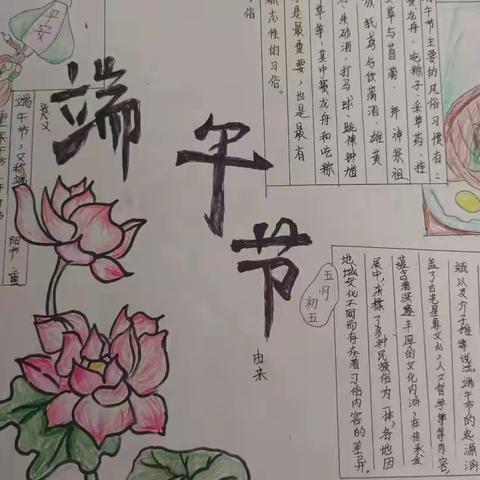 平安
端午节
意义
端午节,又称端
五月
初五
由来
午节主要的风俗习惯有:
赛龙舟、吃粽子、采草药、挂
艾草与菖蒲、拜神祭祖
放纸鸢与饮蒲酒、雄黄
朱砂酒、打马球、跳
草等,其中赛龙舟和吃粽
是最重要,也是最有
标志性的习俗。
俗
娥以及介子推等说法。端午节的起源涵
盖了古老星象文化、人文哲学等等内容,
蕴含着深邃丰厚的文化内涵;在传承发
展中,杂糅了多种民族俗为一体,各地因
地域文化不同而存在着习俗内容的差异。